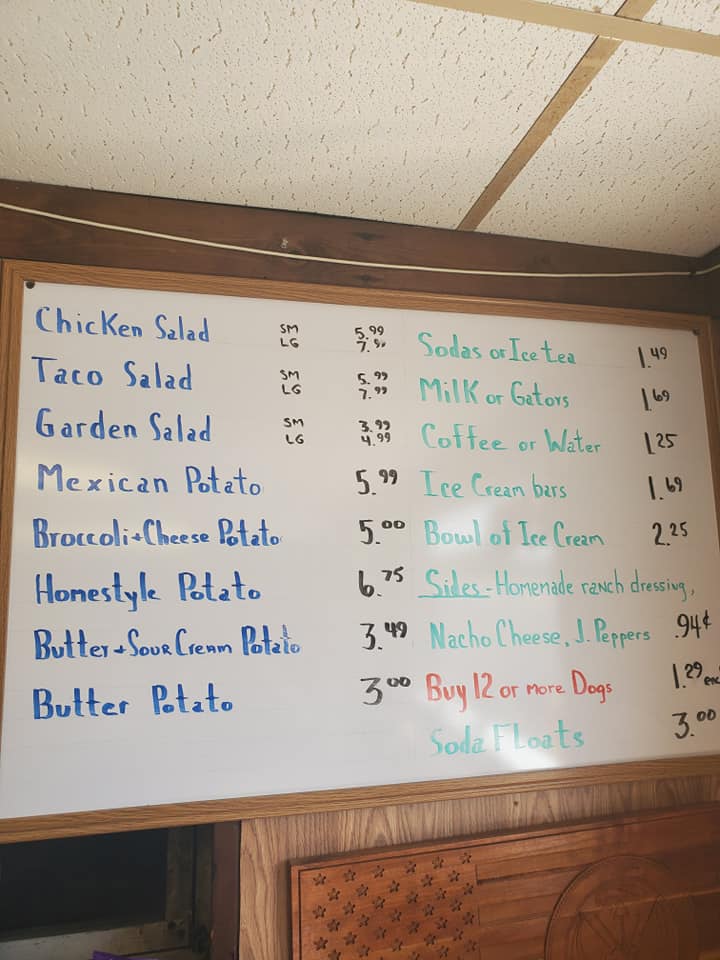 Chicken Salad SM 5.99
LG 7.99
Taco Salad SM 5.99
LG 7.99
Garden Salad SM 3.99
LG 4.99
Mexican Potato 5.99
Broccoli+Cheese Potato 5.00
Homestyle Potato 6.75
Butter+Sour Cream Potato 3.49
Butter Potato 3.00
Sodas or Ice tea 1.49
Milk or Gators 1.69
Coffee or Water 1.25
Ice Cream bars 1.69
Bowl of Ice Cream 2.25
Sides-Homemade ranch dressing,
Nacho Cheese, J. Peppers .94¢
Buy 12 or more Dogs 1.29
Soda Floats 3.00